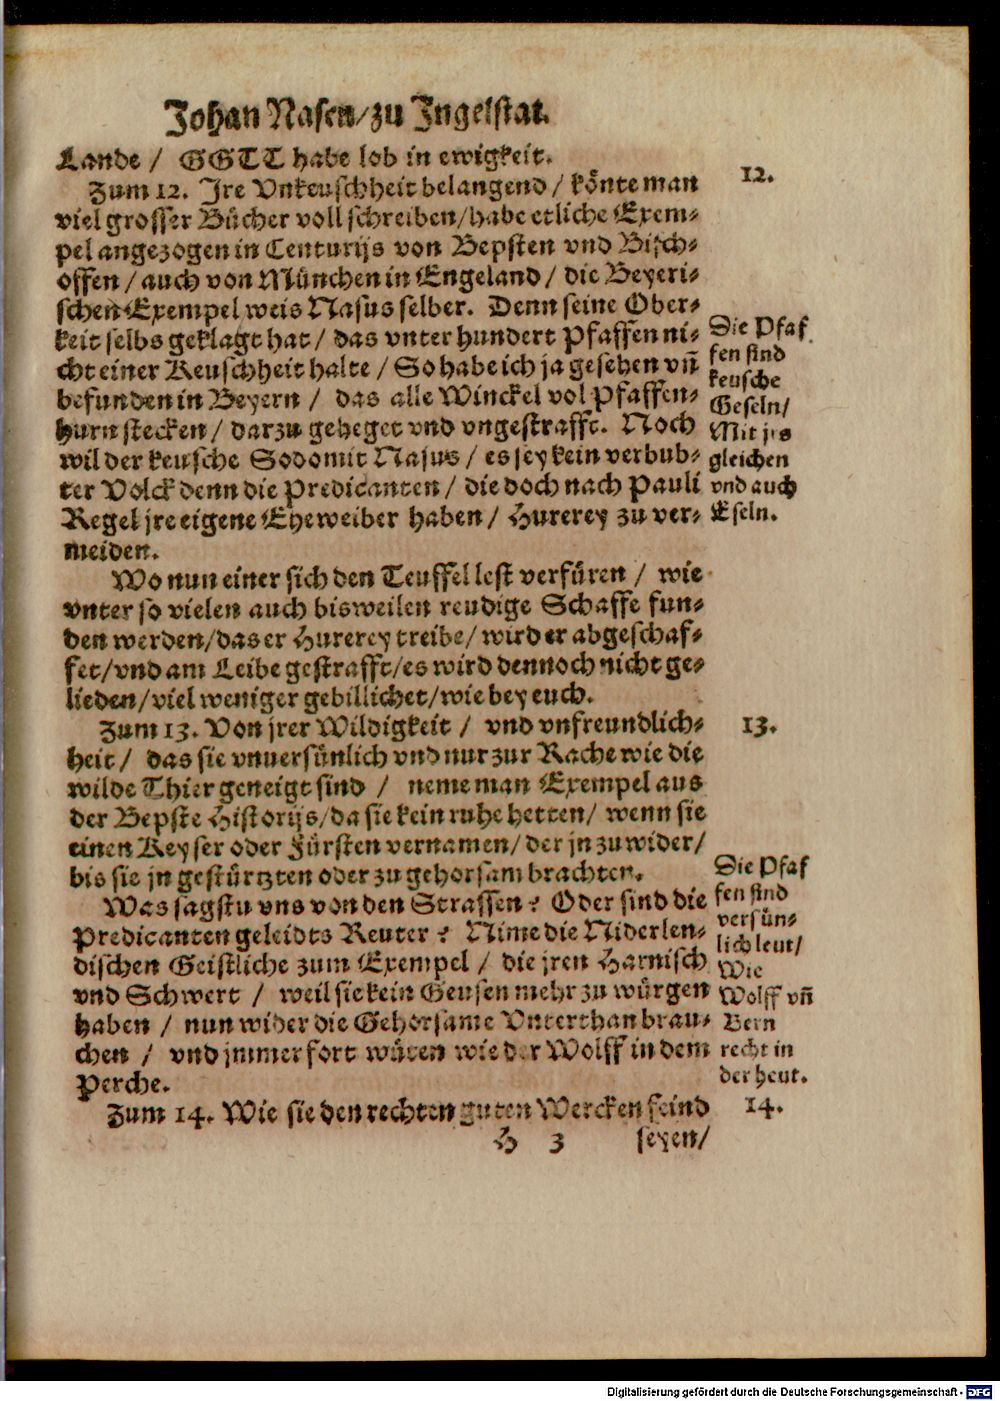 Johan Nasen/zu Jngelstat.
Lande / GGTT habe lob in ewigkeit.
Zum 12. Jre Vnkeuschheit belangend / könte man
viel grosser Bücher voll schreiben/habe etliche Exem-
pel angezogen in Centurijs von Bepsten vnd Bisch-
offen / auch von München in Engeland / die Beyeri-
schen Exempel weis Nasus selber. Denn seine Ober-
keit selbs geklagt hat / das vnter hundert Pfaffen ni-
cht einer Keuschheit halte / So habe ich ja gesehen vñ
befunden in Beyern / das alle Winckel vol Pfaffen-
hurn stecken / darzu geheget vnd vngestrafft. Noch
wil der keusche Sodomit Nasus / es sey kein verbub-
ter Volck denn die Predicanten / die doch nach Pauli
Regel jre eigene Eheweiber haben / Hurerey zu ver-
meiden.
Wo nun einer sich den Teuffel lest verfüren / wie
vnter so vielen auch bisweilen reudige Schaffe fun-
den werden/das er Hurerey treibe/wird er abgeschaf-
fet/vnd am Leibe gestrafft/es wird dennoch nicht ge-
lieden/viel weniger gebillichet/wie bey euch.
Zum 13. Von jrer Wildigkeit / vnd vnfreundlich-
heit / das sie vnuersünlich vnd nur zur Rache wie die
wilde Thier geneigt sind / neme man Exempel aus
der Bepste Historijs/da sie kein ruhe hetten/ wenn sie
einen Keyser oder Fürsten vernamen/der jn zu wider/
bis sie jn gestürtzten oder zu gehorsam brachten.
Was sagstu vns von den Strassen? Oder sind die
Predicanten geleidts Reuter? Nime die Niderlen-
dischen Geistliche zum Exempel / die jren Harnisch
vnd Schwert / weil sie kein Geusen mehr zu würgen
haben / nun wider die Gehorsame Vnterthan brau-
chen / vnd jmmerfort wüten wie der Wolff in dem
Perche.
Zum 14. Wie sie den rechten guten Wercken feind
H 3 seyen/
12.
Die Pfaf
fen sind
keusche
Geseln/
Mit jrs
gleichen
vnd auch
Eseln.
13.
Die Pfaf
fen sind
versün-
lich leut/
Wie
Wolff vñ
Bern
recht in
der heut.
14.
Digitalisierung gefördert durch die Deutsche Forschungsgemeinschaft - DFG